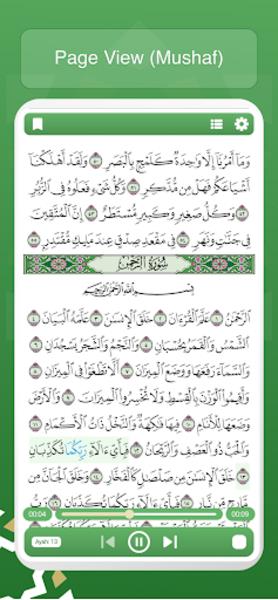 Page View (Mushaf)
وَمَآ أَمْرُنَآ إِلَّا وَٰحِدَةٌ كَلَمْحٍۭ بِٱلْبَصَرِ ٥٠ وَلَقَدْ أَهْلَكْنَآ
أَشْيَاعَكُمْ فَهَلْ مِن مُّدَّكِرٍ ٥١ وَكُلُّ شَىْءٍ فَعَلُوهُ فِى ٱلزُّبُرِ
٥٢ وَكُلُّ صَغِيرٍ وَكَبِيرٍ مُّسْتَطَرٌ ٥٣ إِنَّ ٱلْمُتَّقِينَ
فِى جَنَّٰتٍ وَنَهَرٍ ٥٤ فِى مَقْعَدِ صِدْقٍ عِندَ مَلِيكٍ مُّقْتَدِرٍۭ ٥٥
سُورَةُ الرَّحْمَٰن
بِسْمِ ٱللَّهِ ٱلرَّحْمَٰنِ ٱلرَّحِيمِ
ٱلرَّحْمَٰنُ ١ عَلَّمَ ٱلْقُرْءَانَ ٢ خَلَقَ ٱلْإِنسَٰنَ ٣ عَلَّمَهُ ٱلْبَيَانَ ٤
ٱلشَّمْسُ وَٱلْقَمَرُ بِحُسْبَانٍ ٥ وَٱلنَّجْمُ وَٱلشَّجَرُ يَسْجُدَانِ ٦
وَٱلسَّمَآءَ رَفَعَهَا وَوَضَعَ ٱلْمِيزَانَ ٧ أَلَّا تَطْغَوْا۟ فِى ٱلْمِيزَانِ ٨
وَأَقِيمُوا۟ ٱلْوَزْنَ بِٱلْقِسْطِ وَلَا تُخْسِرُوا۟ ٱلْمِيزَانَ ٩ وَٱلْأَرْضَ
وَضَعَهَا لِلْأَنَامِ ١٠ فِيهَا فَٰكِهَةٌ وَٱلنَّخْلُ ذَاتُ ٱلْأَكْمَامِ ١١
وَٱلْحَبُّ ذُو ٱلْعَصْفِ وَٱلرَّيْحَانُ ١٢ فَبِأَىِّ ءَالَآءِ رَبِّكُمَا تُكَذِّبَانِ
١٣ خَلَقَ ٱلْإِنسَٰنَ مِن صَلْصَٰلٍ كَٱلْفَخَّارِ ١٤ وَخَلَقَ ٱلْجَآنَّ مِن
مَّارِجٍ مِّن نَّارٍ ١٥ فَبِأَىِّ ءَالَآءِ رَبِّكُمَا تُكَذِّبَانِ ١٦
00:04 00:09
Ayah: 13